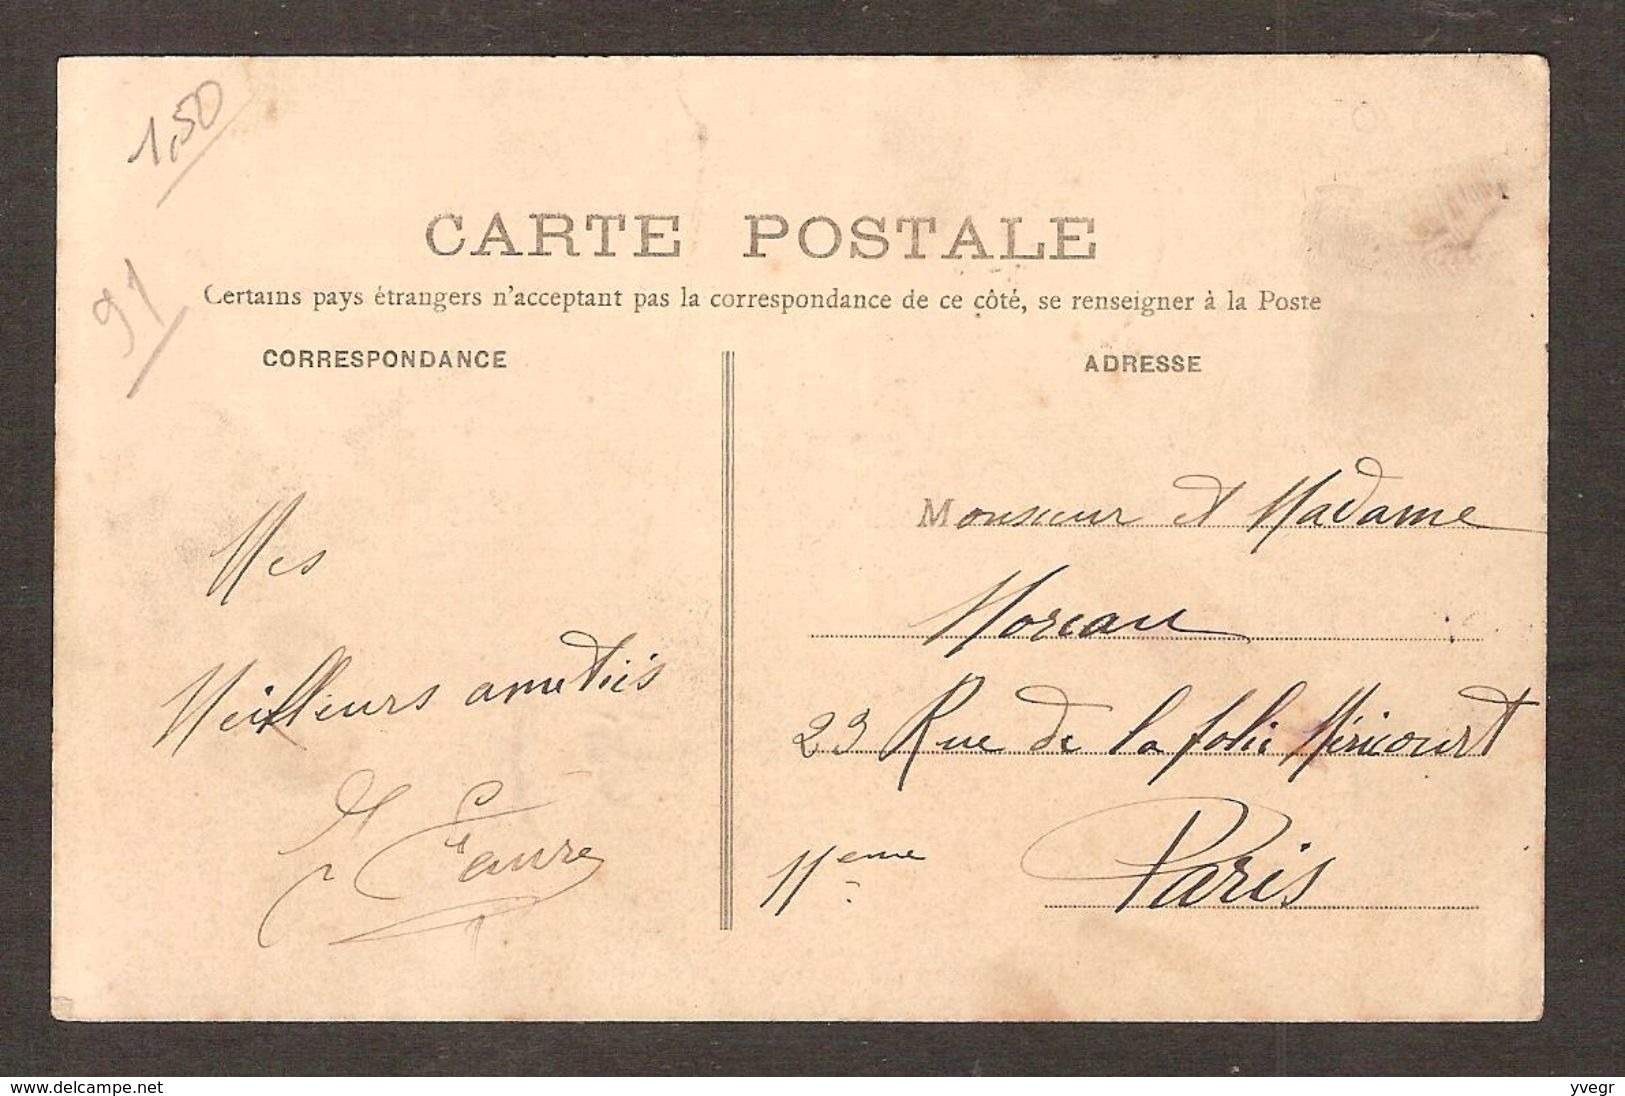 1,50
91
CARTE POSTALE
Certains pays étrangers n'acceptant pas la correspondance de ce côté, se renseigner à la Poste
CORRESPONDANCE
ADRESSE
Mes
Meilleurs ametiés
Faivre
Monsieur et Madame
Moreau
23 Rue de la folie Méricourt
11eme
Paris
www.delcampe.net
yvegr